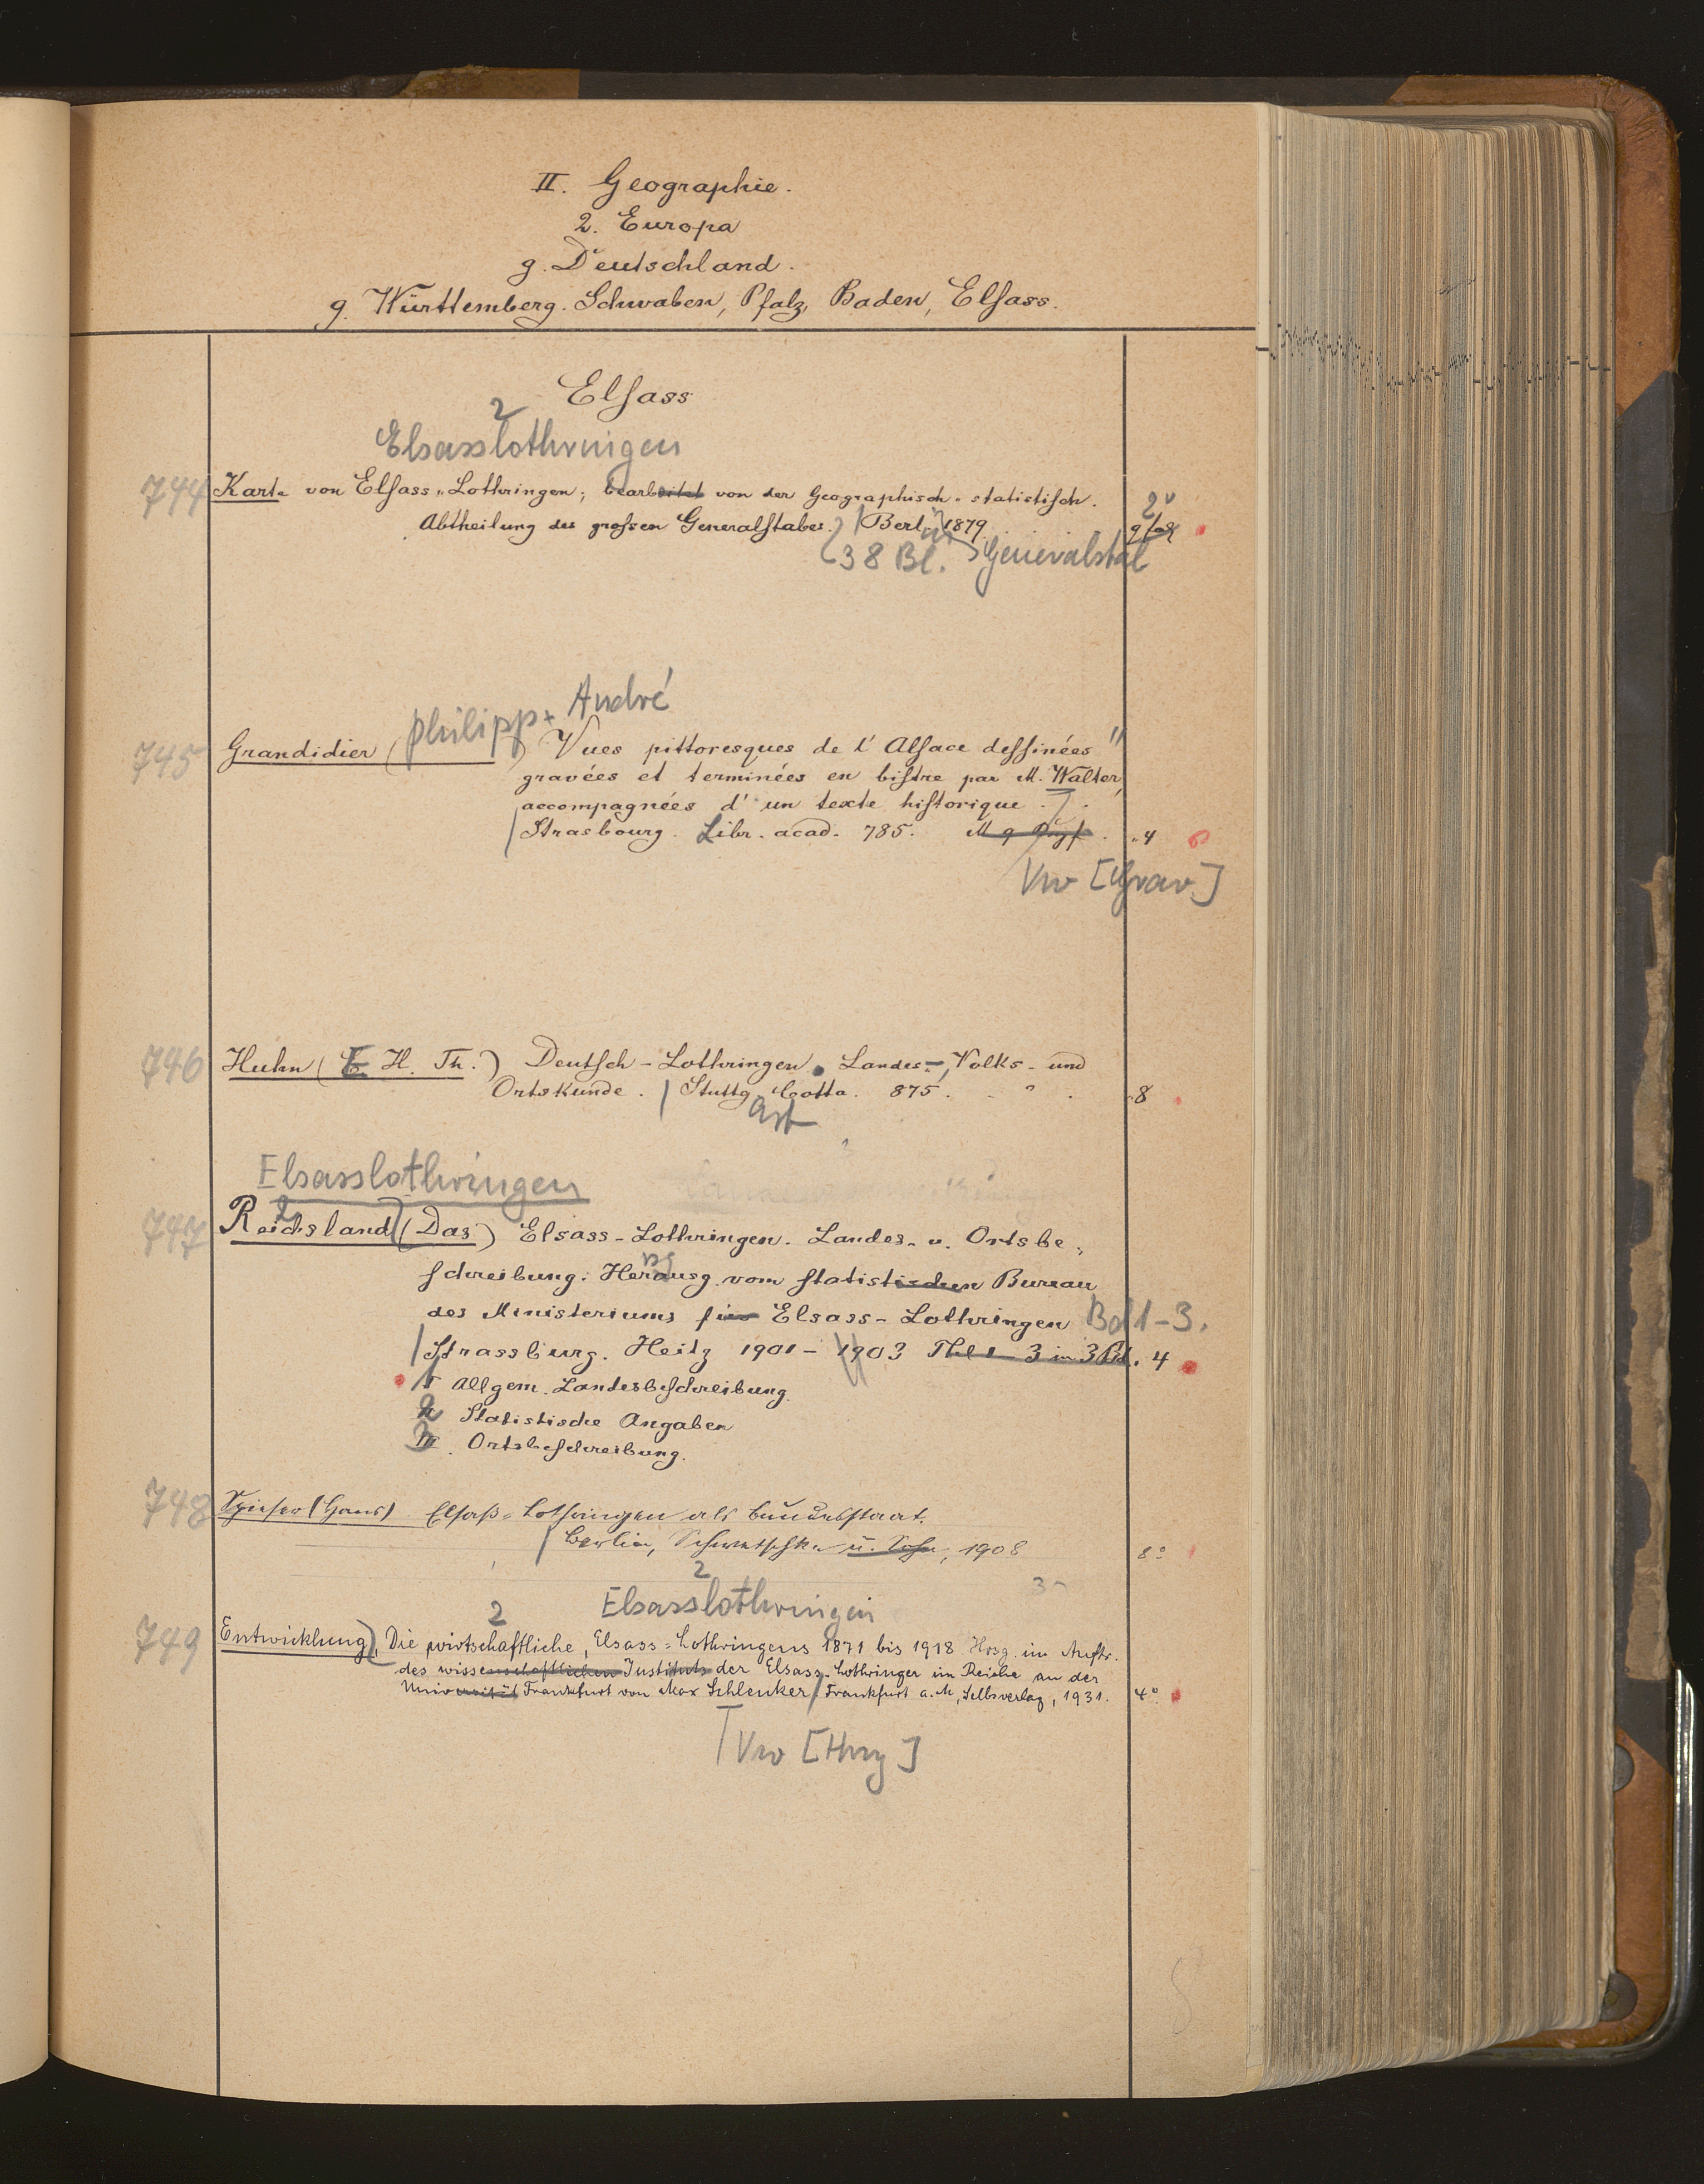 II. Geographie.
2. Europa
g. Deutschland.
g. Württemberg. Schwaben, Pfalz, Baden, Elsass.
Elsass
2
Elsasslothringen
744 Karte von Elsass-Lothringen; bearbeitet von der Geographisch-statistisch.
Abtheilung des grossen Generalstabes. Berlin 1879. 2°
38 Bl. Generalstab
Philipp André
745 Grandidier ( ) Vues pittoresques de l'Alsace dessinées
gravées et terminées en bistre par M. Walter,
accompagnées d'un texte historique.
Strasbourg. Libr. acad. 785. 4
Vw [Grav.]
746 Huhn (E. H. Th.) Deutsch-Lothringen. Landes-, Volks- und
Ortskunde. Stuttg. Cotta. 875. 8
art
Elsasslothringen
2
747 Reichsland (Das) Elsass-Lothringen. Landes- u. Ortsbe-
schreibung. Herausg. vom statistischen Bureau
des Ministeriums für Elsass-Lothringen Bd 1-3.
Strassburg. Heitz 1901-1903 Thl 1-3 in 3 Bd. 4
1 Allgem. Landesbeschreibung.
2 Statistische Angaben
3 Ortsbeschreibung.
748 Spieser (Hans) Elsaß-Lothringen als Bundesstaat.
Berlin, Schwetschke u. Sohn, 1908 8°
2
Elsasslothringen
2
749 Entwicklung, Die wirtschaftliche, Elsass-Lothringens 1871 bis 1918 Hrsg. im Auftr.
des wissenschaftlichen Instituts der Elsass-Lothringer im Reiche an der
Universität Frankfurt von Max Schlenker. Frankfurt a. M., Selbsverlag, 1931. 4°
Vw [Hrsg]